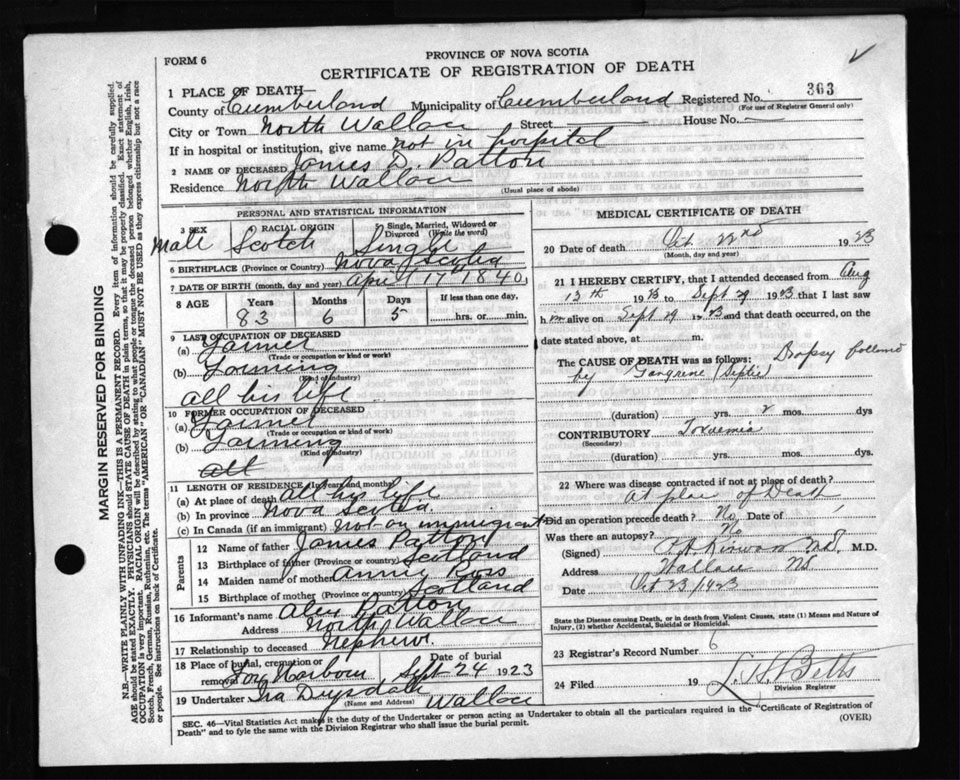 PROVINCE OF NOVA SCOTIA
FORM 6
CERTIFICATE OF REGISTRATION OF DEATH
1 PLACE OF DEATH—
County of Cumberland Municipality of Cumberland Registered No. 363
(For use of Registrar General only)
City or Town North Wallace Street House No.
If in hospital or institution, give name not in hospital
2 NAME OF DECEASED James D. Patton
Residence North Wallace
(Usual place of abode)
PERSONAL AND STATISTICAL INFORMATION
3 SEX RACIAL ORIGIN Single, Married, Widowed or Divorced (Write the word)
Male Scotch Single
6 BIRTHPLACE (Province or Country) Nova Scotia
7 DATE OF BIRTH (month, day and year) April 17th 1840
8 AGE Years Months Days If less than one day,
83 6 5 hrs. or min.
9 LAST OCCUPATION OF DECEASED
(a) Farmer
(Trade or occupation or kind or work)
(b) Farming
(Kind of industry)
all his life
10 FORMER OCCUPATION OF DECEASED
(a) Farmer
(Trade or occupation or kind or work)
(b) Farming
(Kind of industry)
all
11 LENGTH OF RESIDENCE (In years and months)
(a) At place of death all his life
(b) In province Nova Scotia
(c) In Canada (if an immigrant) Not an immigrant
Parents
12 Name of father James Patton
13 Birthplace of father (Province or country) Scotland
14 Maiden name of mother Anny Ross
15 Birthplace of mother (Province or country) Scotland
16 Informant's name Alex Patton
Address North Wallace
17 Relationship to deceased Nephew
18 Place of burial, cremation or removal Fox Harbour Date of burial Sept 24 1923
19 Undertaker Ira Drysdale Wallace
(Name and Address)
MEDICAL CERTIFICATE OF DEATH
20 Date of death Oct. 22nd 1923
(Month, day and year)
21 I HEREBY CERTIFY, that I attended deceased from Aug
13th 1923 to Sept 29 1923 that I last saw
h m alive on Sept 29 1923 and that death occurred, on the
date stated above, at m.
The CAUSE OF DEATH was as follows: Dropsy followed
by Gangrene (Septic)
(duration) yrs. 2 mos. dys
CONTRIBUTORY Toxaemia
(Secondary)
(duration) yrs. mos. dys.
22 Where was disease contracted if not at place of death?
At place of Death
Did an operation precede death? No Date of
Was there an autopsy? No
(Signed) Kirwan M.D. M.D.
Address Wallace NS.
Date Oct 23/1923
State the Disease causing Death, or in death from Violent Causes, state (1) Means and Nature of
Injury, (2) whether Accidental, Suicidal or Homicidal.
23 Registrar's Record Number 6
24 Filed 19 Betts
Division Registrar
SEC. 46—Vital Statistics Act makes it the duty of the Undertaker or person acting as Undertaker to obtain all the particulars required in the "Certificate of Registration of
Death" and to fyle the same with the Division Registrar who shall issue the burial permit.
(OVER)
MARGIN RESERVED FOR BINDING
N.B.—WRITE PLAINLY WITH UNFADING INK—THIS IS A PERMANENT RECORD. Every item of information should be carefully supplied.
AGE should be stated EXACTLY. PHYSICIANS should STATE CAUSE OF DEATH in plain terms, so that it may be properly classified. Exact statement of
OCCUPATION is very important. RACIAL ORIGIN will be described by stating to what people or tongue the deceased person belonged whether English, Irish,
Scotch, French, German, Russian, Ruthenian, etc. The terms "AMERICAN" or "CANADIAN" MUST NOT BE USED as they express citizenship but not a race
or people. See instructions on back of Certificate.